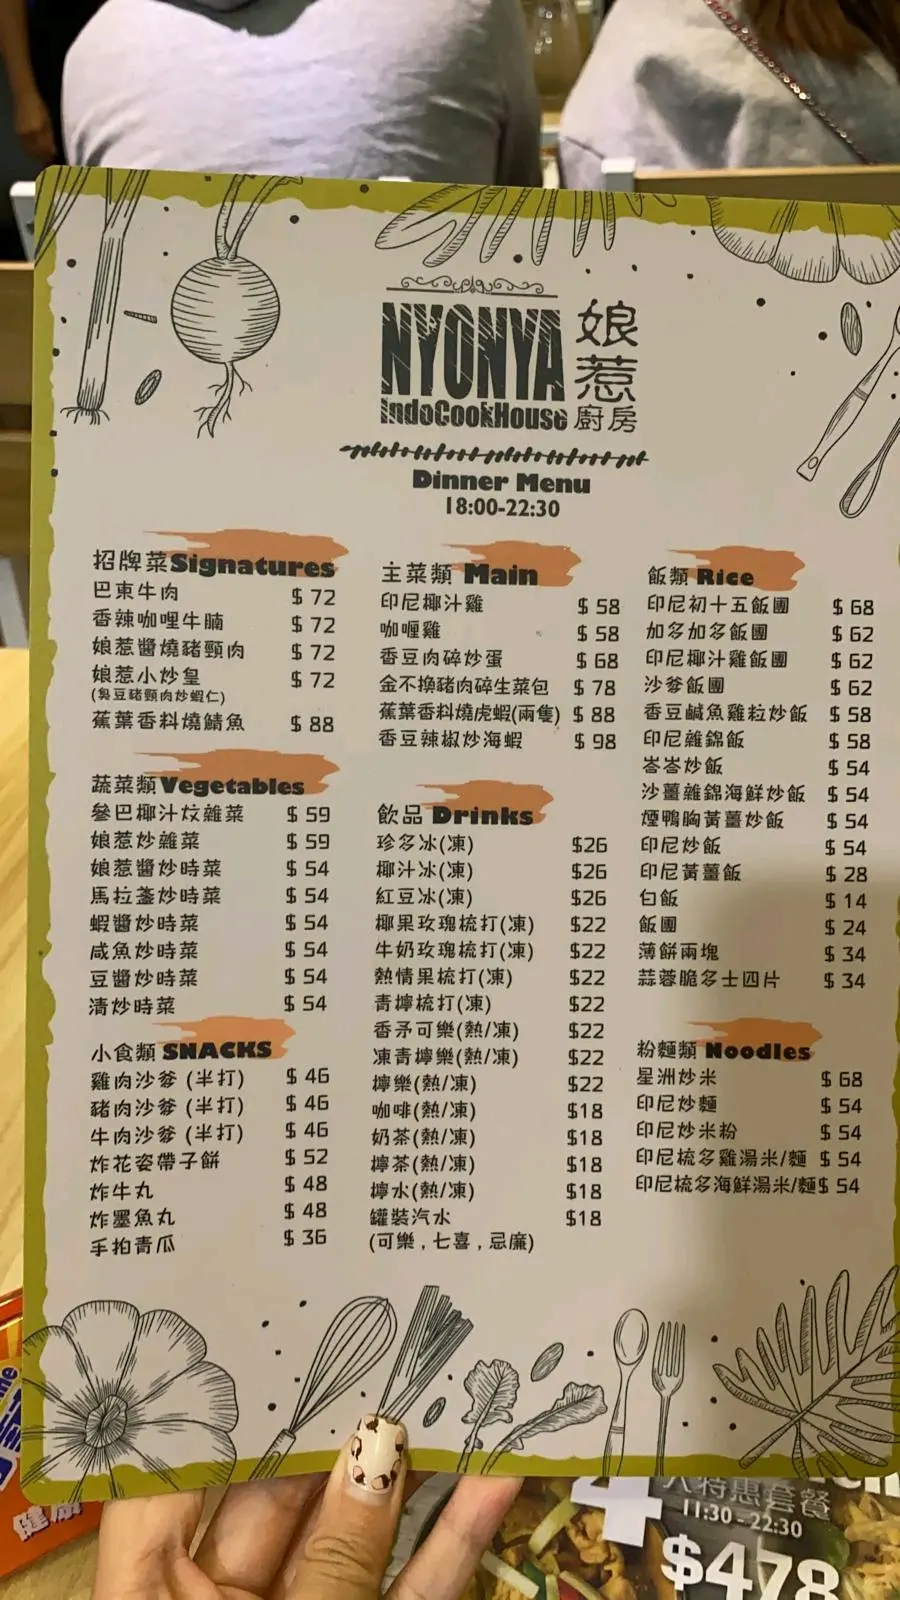 NYONYA
IndoCookHouse
娘惹
廚房
Dinner Menu
18:00-22:30
招牌菜Signatures
巴東牛肉 $ 72
香辣咖哩牛腩 $ 72
娘惹醬燒豬頸肉 $ 72
娘惹小炒皇 $ 72
(臭豆豬頸肉炒蝦仁)
蕉葉香料燒鯖魚 $ 88
蔬菜類Vegetables
參巴椰汁炆雜菜 $ 59
娘惹炒雜菜 $ 59
娘惹醬炒時菜 $ 54
馬拉盞炒時菜 $ 54
蝦醬炒時菜 $ 54
咸魚炒時菜 $ 54
豆醬炒時菜 $ 54
清炒時菜 $ 54
小食類 SNACKS
雞肉沙爹 (半打) $ 46
豬肉沙爹 (半打) $ 46
牛肉沙爹 (半打) $ 46
炸花姿帶子餅 $ 52
炸牛丸 $ 48
炸墨魚丸 $ 48
手拍青瓜 $ 36
主菜類 Main
印尼椰汁雞 $ 58
咖喱雞 $ 58
香豆肉碎炒蛋 $ 68
金不換豬肉碎生菜包 $ 78
蕉葉香料燒虎蝦(兩隻) $ 88
香豆辣椒炒海蝦 $ 98
飲品 Drinks
珍多冰(凍) $26
椰汁冰(凍) $26
紅豆冰(凍) $26
椰果玫瑰梳打(凍) $22
牛奶玫瑰梳打(凍) $22
熱情果梳打(凍) $22
青檸梳打(凍) $22
香矛可樂(熱/凍) $22
凍青檸樂(熱/凍) $22
檸樂(熱/凍) $22
咖啡(熱/凍) $18
奶茶(熱/凍) $18
檸茶(熱/凍) $18
檸水(熱/凍) $18
罐裝汽水 $18
(可樂 , 七喜 , 忌廉)
飯類 Rice
印尼初十五飯團 $ 68
加多加多飯團 $ 62
印尼椰汁雞飯團 $ 62
沙爹飯團 $ 62
香豆鹹魚雞粒炒飯 $ 58
印尼雜錦飯 $ 58
峇峇炒飯 $ 54
沙薑雜錦海鮮炒飯 $ 54
煙鴨胸黃薑炒飯 $ 54
印尼炒飯 $ 54
印尼黃薑飯 $ 28
白飯 $ 14
飯團 $ 24
薄餅兩塊 $ 34
蒜蓉脆多士四片 $ 34
粉麵類 Noodles
星洲炒米 $ 68
印尼炒麵 $ 54
印尼炒米粉 $ 54
印尼梳多雞湯米/麵 $ 54
印尼梳多海鮮湯米/麵$ 54
4
人特惠套餐
11:30 - 22:30
$478
健康